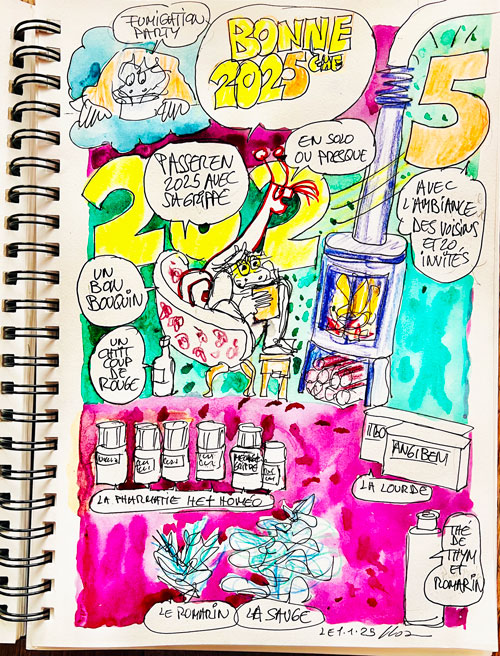 FUMIGATION
PARTY
BONNE
2025
5
202
PASSER EN
2025 AVEC
SA GRIPPE
EN SOLO
OU PRESQUE
AVEC
L'AMBIANCE
DES VOISINS
ET 20
INVITÉS
UN
BON
BOUQUIN
UN
CHTI
COUP
DE
ROUGE
LA PHARMATIE HET HOMÉO
ANGIBEM
LA LOURDE
THÉ
DE
THYM
ET
ROMARIN
LE ROMARIN
LA SAUGE
LE 1.1.25